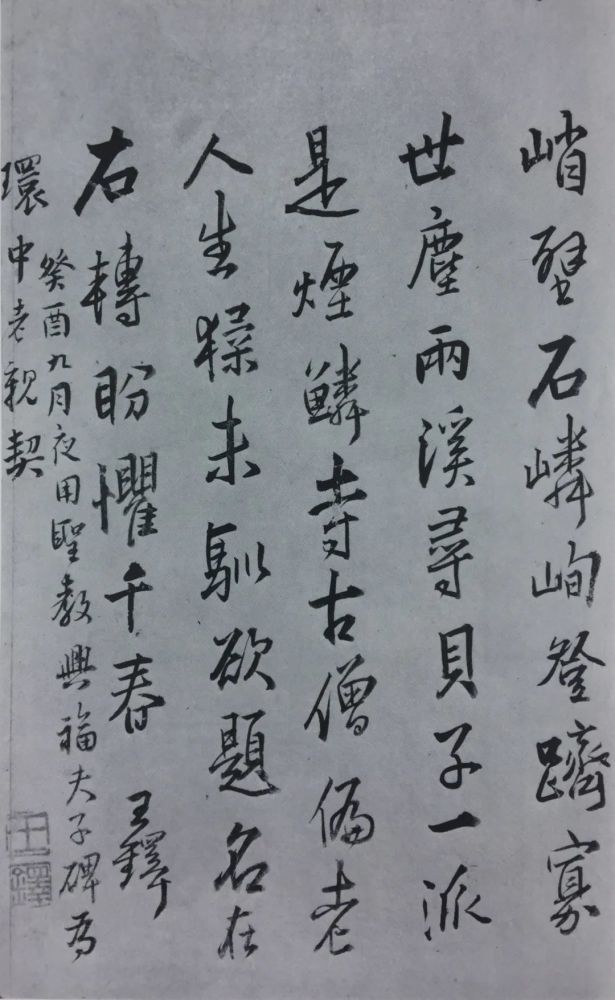 峭壁石嶙峋登躋寡
世塵兩溪尋貝子一派
是煙鱗寺古僧偏老
人生猱未馴欲題名在
右轉盼懼千春 王鐸
癸酉九月夜用聖教興福夫子碑為
環中老親契
王鐸